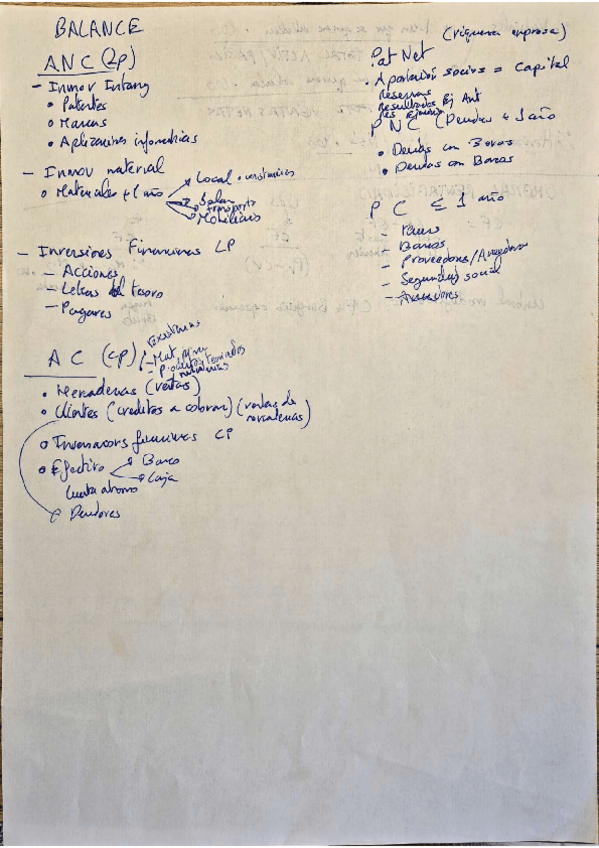 BALANCE
ANC (LP)
- Inmov Intang
• Patentes
• Marcas
• Aplicaciones informaticas
- Inmov material
• Materiales + 1 año
Local · construcciones
transporte
Mobiliario
- Inversiones Financieras LP
- Acciones
- Letras del tesoro
- Pagares
AC (CP)
existencias
- Mat prima
- Productos terminados
• Mercaderias (ventas)
• Clientes (creditos a cobrar) (ventas de mercaderias)
• Inversiones financieras CP
• Efectivo
Banco
Caja
Cuenta ahorro
• Deudores
Pat Net
(riqueza empresa)
Aportacion socios = Capital
Reservas
Resultados Ej Ant
Res Ejercicio
PNC (Deudas + 1 año
• Deudas con Bancos
• Deudas con Bancos
PC ≤ 1 año
- Bancos
- Proveedores/Acreedores
- Seguridad social